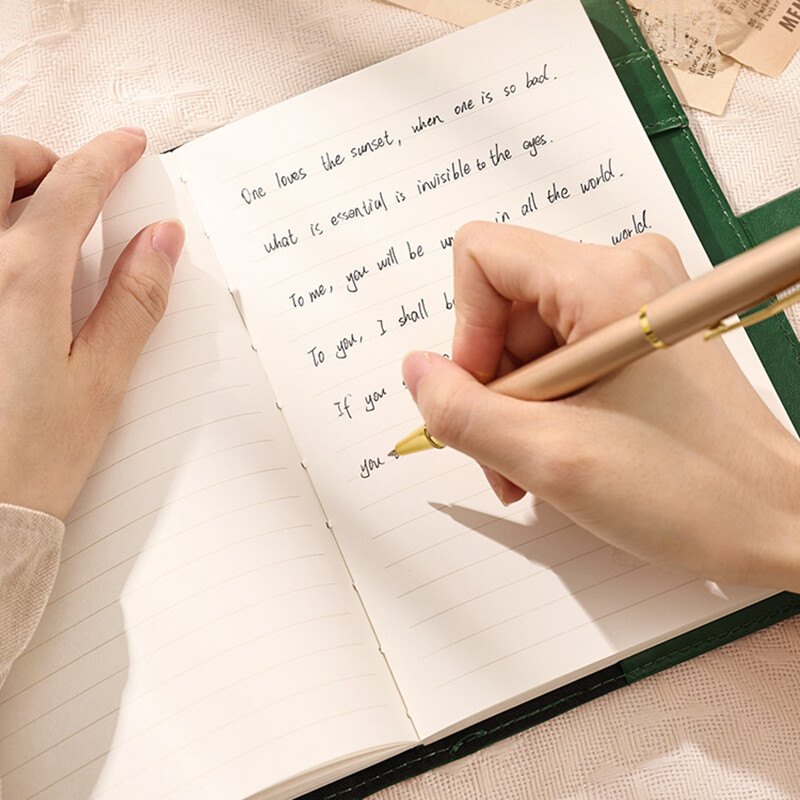 One loves the sunset, when one is so bad.
what is essential is invisible to the eyes.
To me, you will be in all the world.
To you, I shall world.
If you
you
MEM